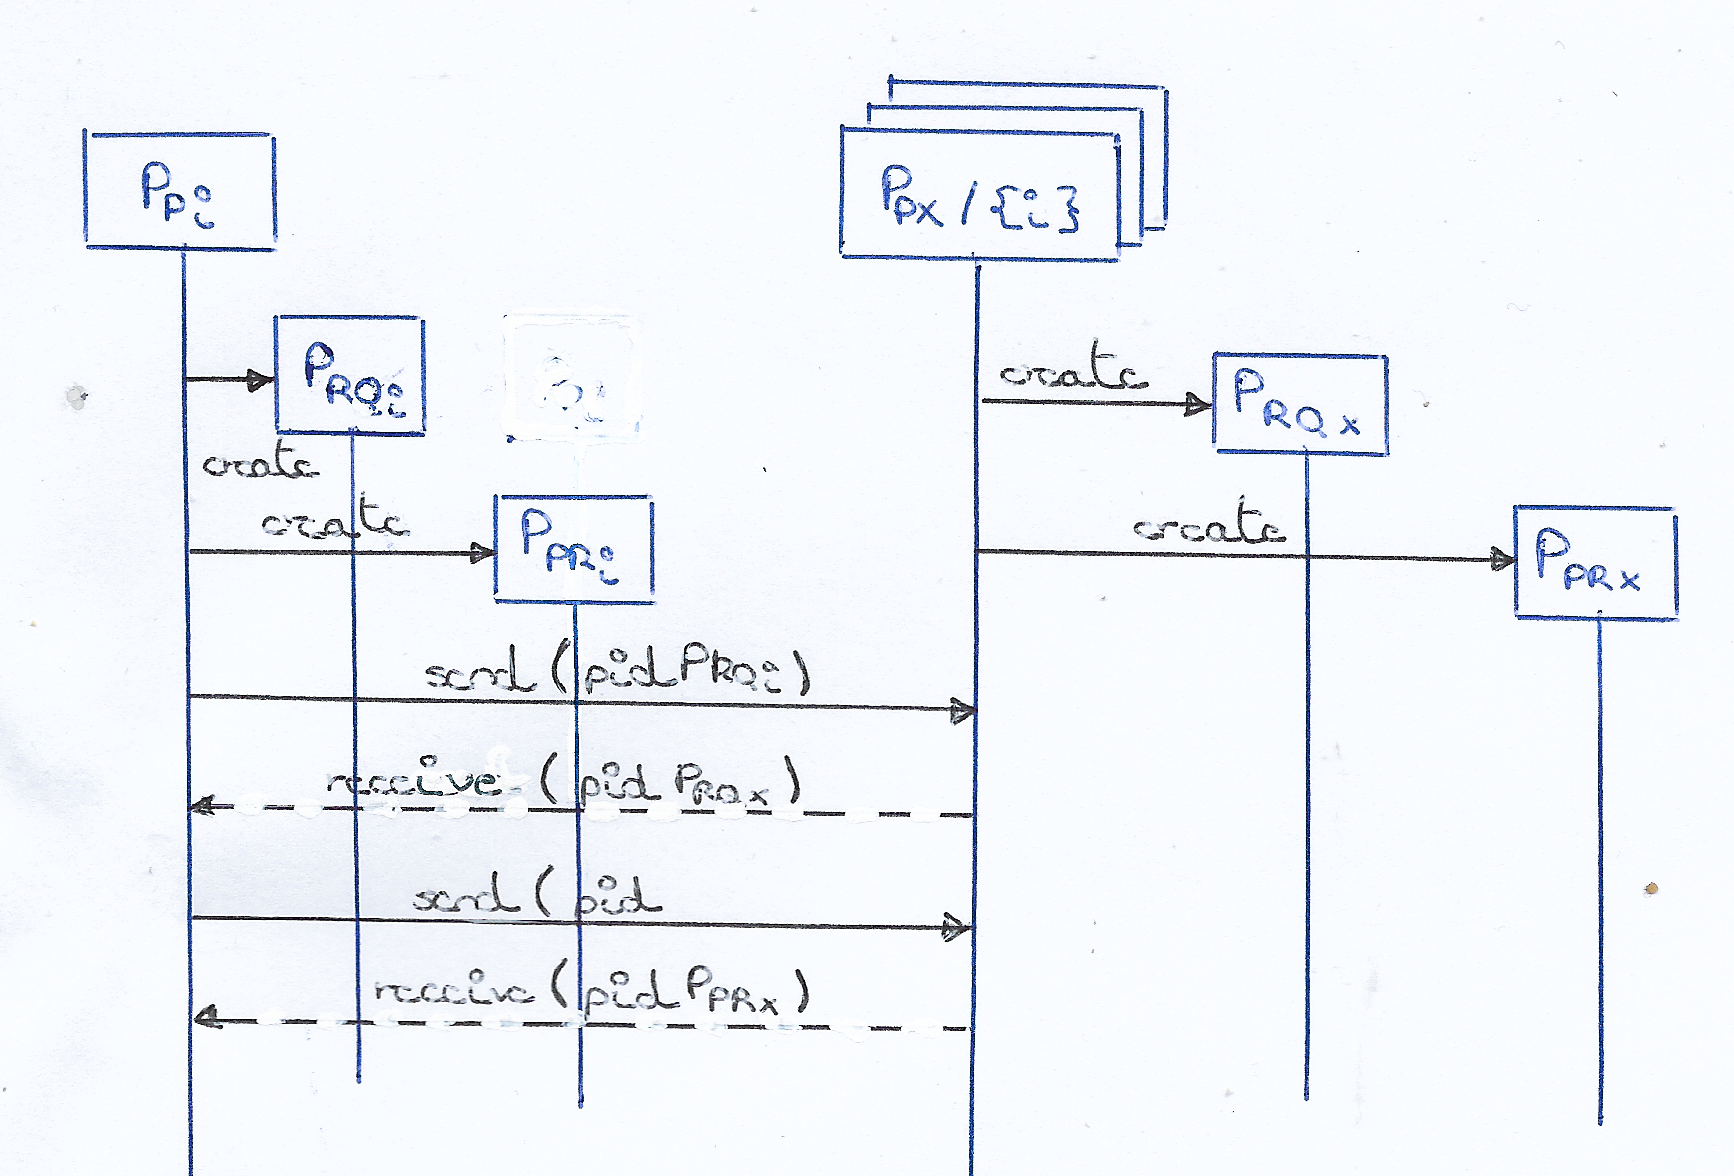 PPi
PPX / {i}
PRQi
create
PRQX
create
create
PPRi
create
PPRX
send (pid PRQi)
receive (pid PRQX)
send (pid
receive (pid PPRX)